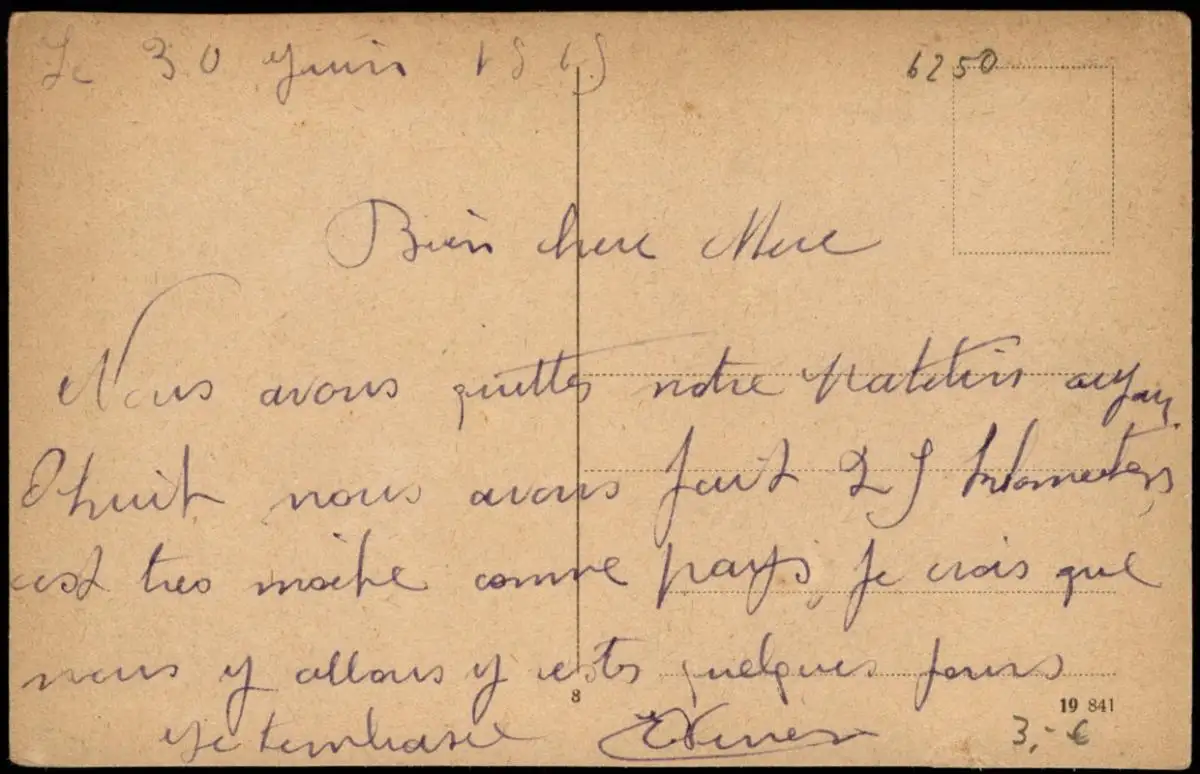 Le 30 Juin 1919
6250
Bien chere Mere
Nous avons quittes notre aujour
dhuit nous avons fait 25 kilometers
cest tres moche comme pays, je crois que
nous y allons y restes quelques jours
je tembrasse
8
19 841
3,- €